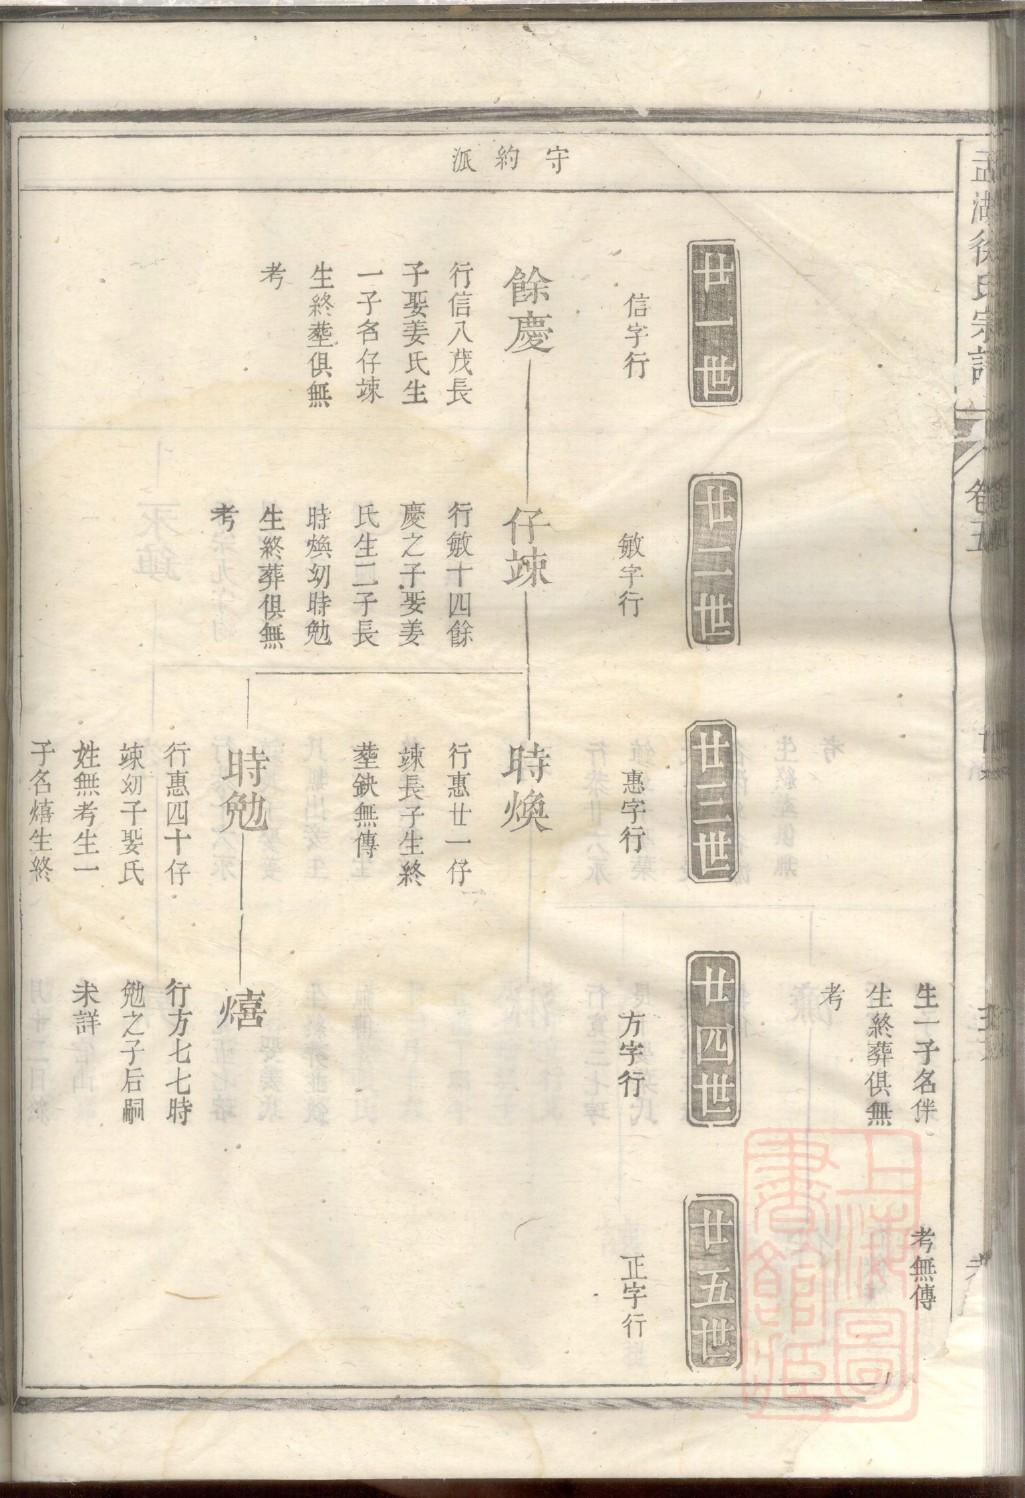 孟湖徐氏宗譜
卷五
守約派
生一子名伴
生終葬俱無
考
考無傳
廿一世
廿二世
廿三世
廿四世
廿五世
信字行
敏字行
惠字行
方字行
正字行
餘慶
行信八茂長
子娶姜氏生
一子名仔竦
生終塟俱無
考
仔竦
行敏十四餘
慶之子娶姜
氏生二子長
時煥幼時勉
生終葬俱無
考
時煥
行惠廿一仔
竦長子生終
塟鈌無傳
時勉
行惠四十仔
竦幼子娶氏
姓無考生一
子名熺生終
熺
行方七七時
勉之子后嗣
未詳
上海圖書館藏